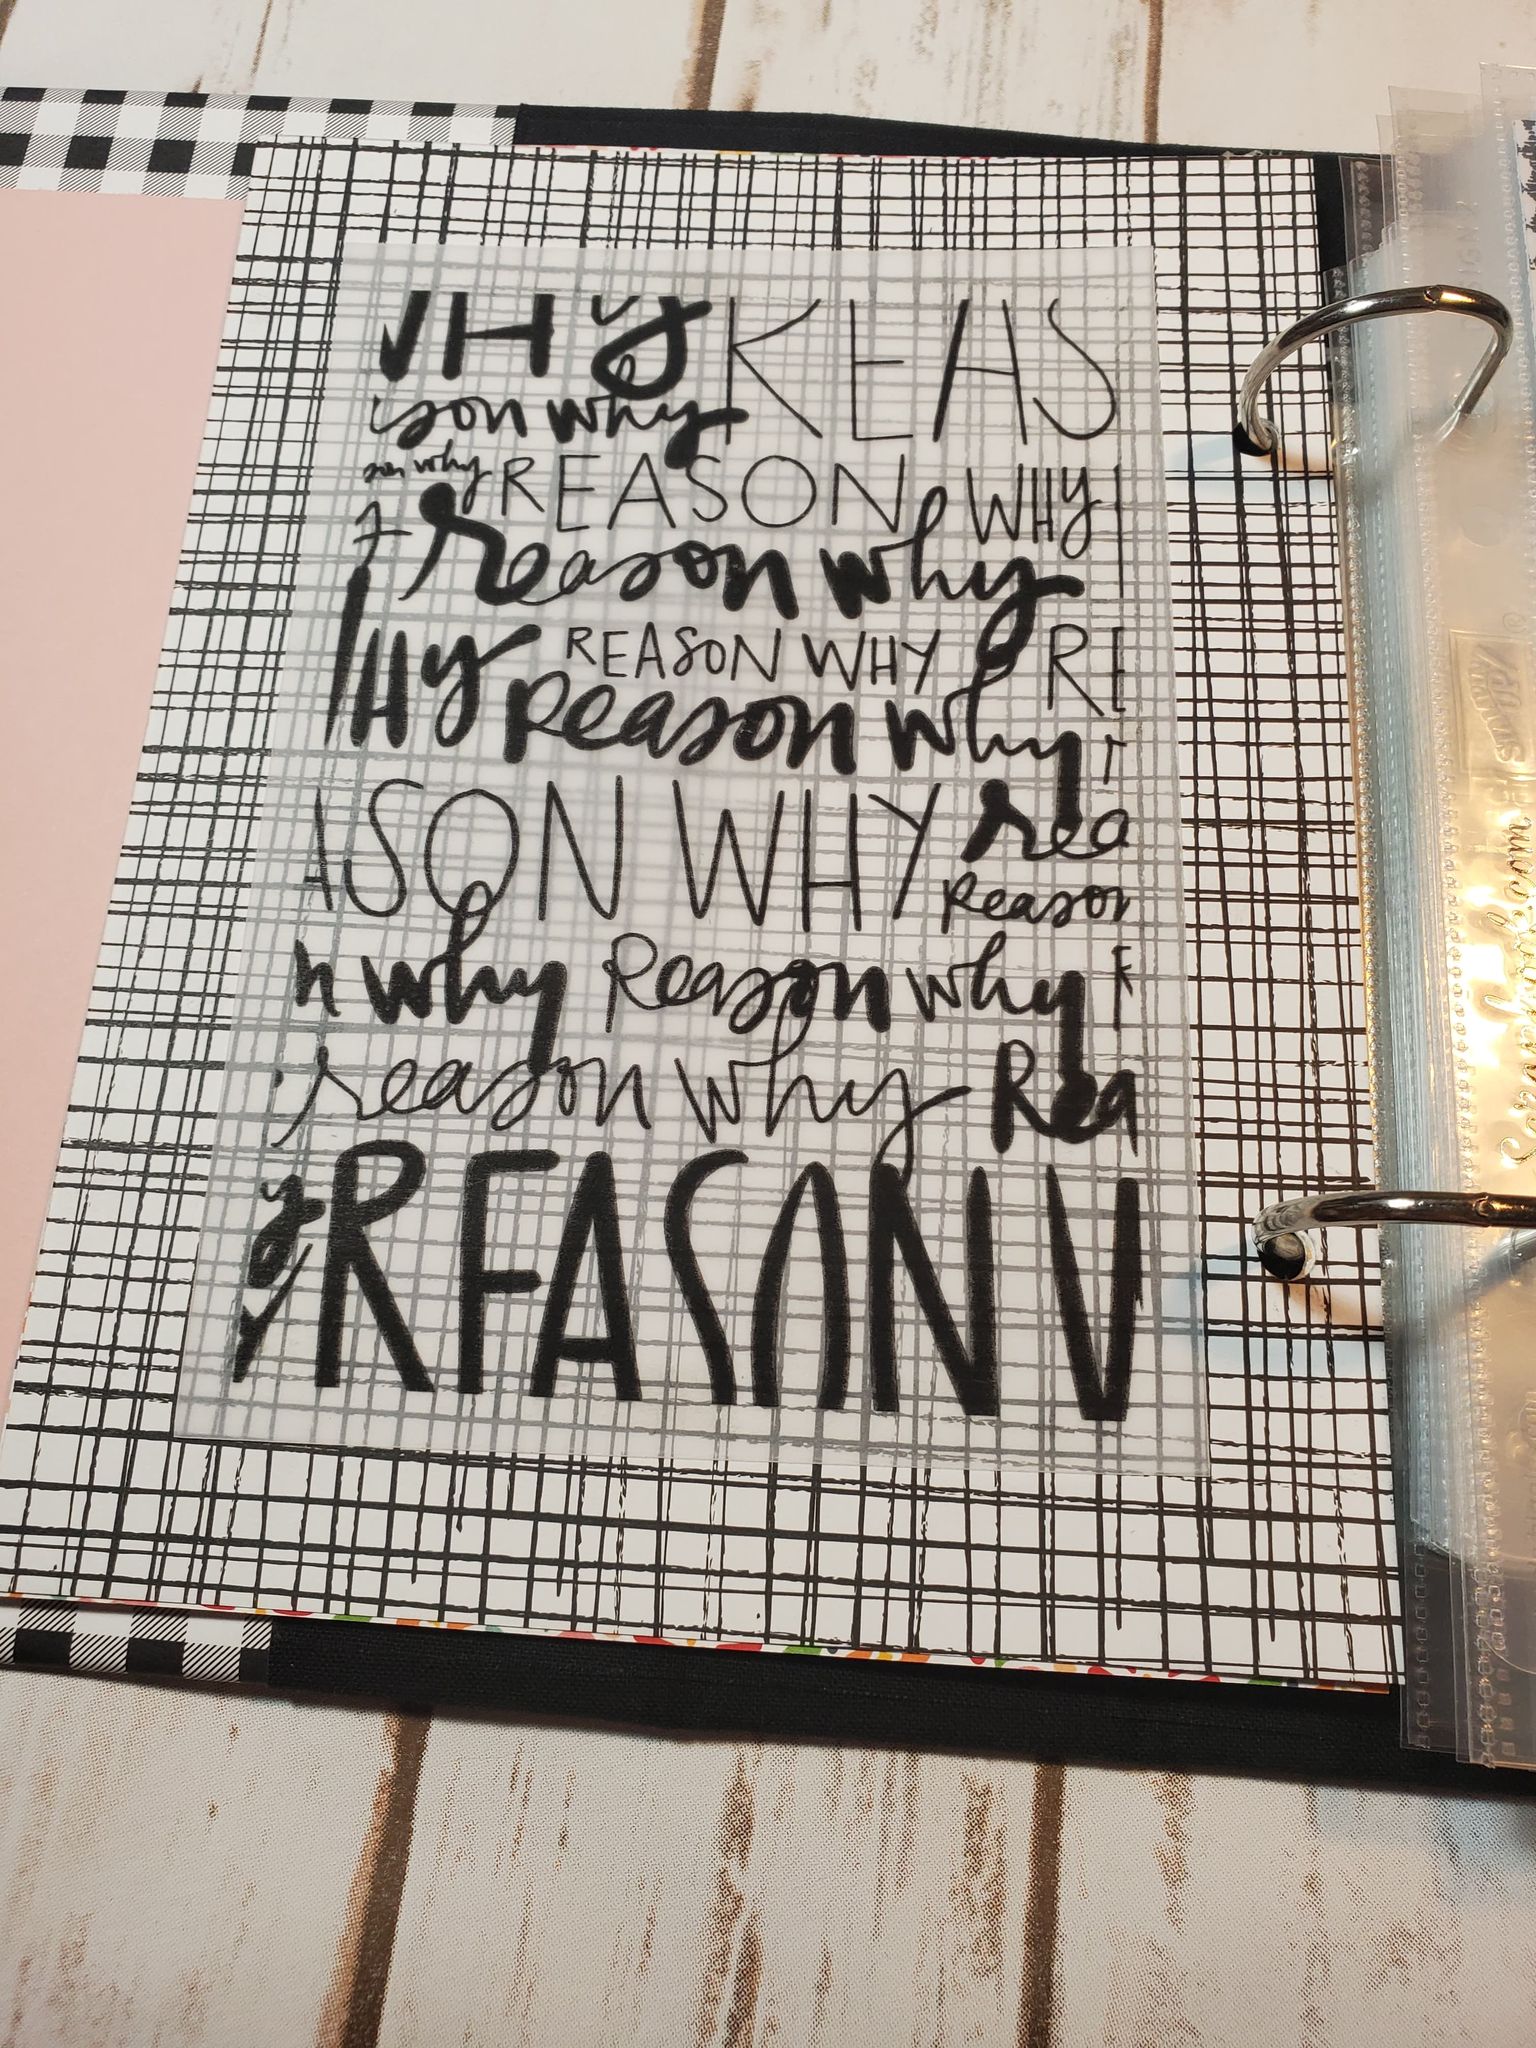 WHY REAS
son why
son why REASON WHY
reason why
HY REASON WHY RE
Reason why
ASON WHY rea
Reason
n why Reason why
reason why Rea
y REASON